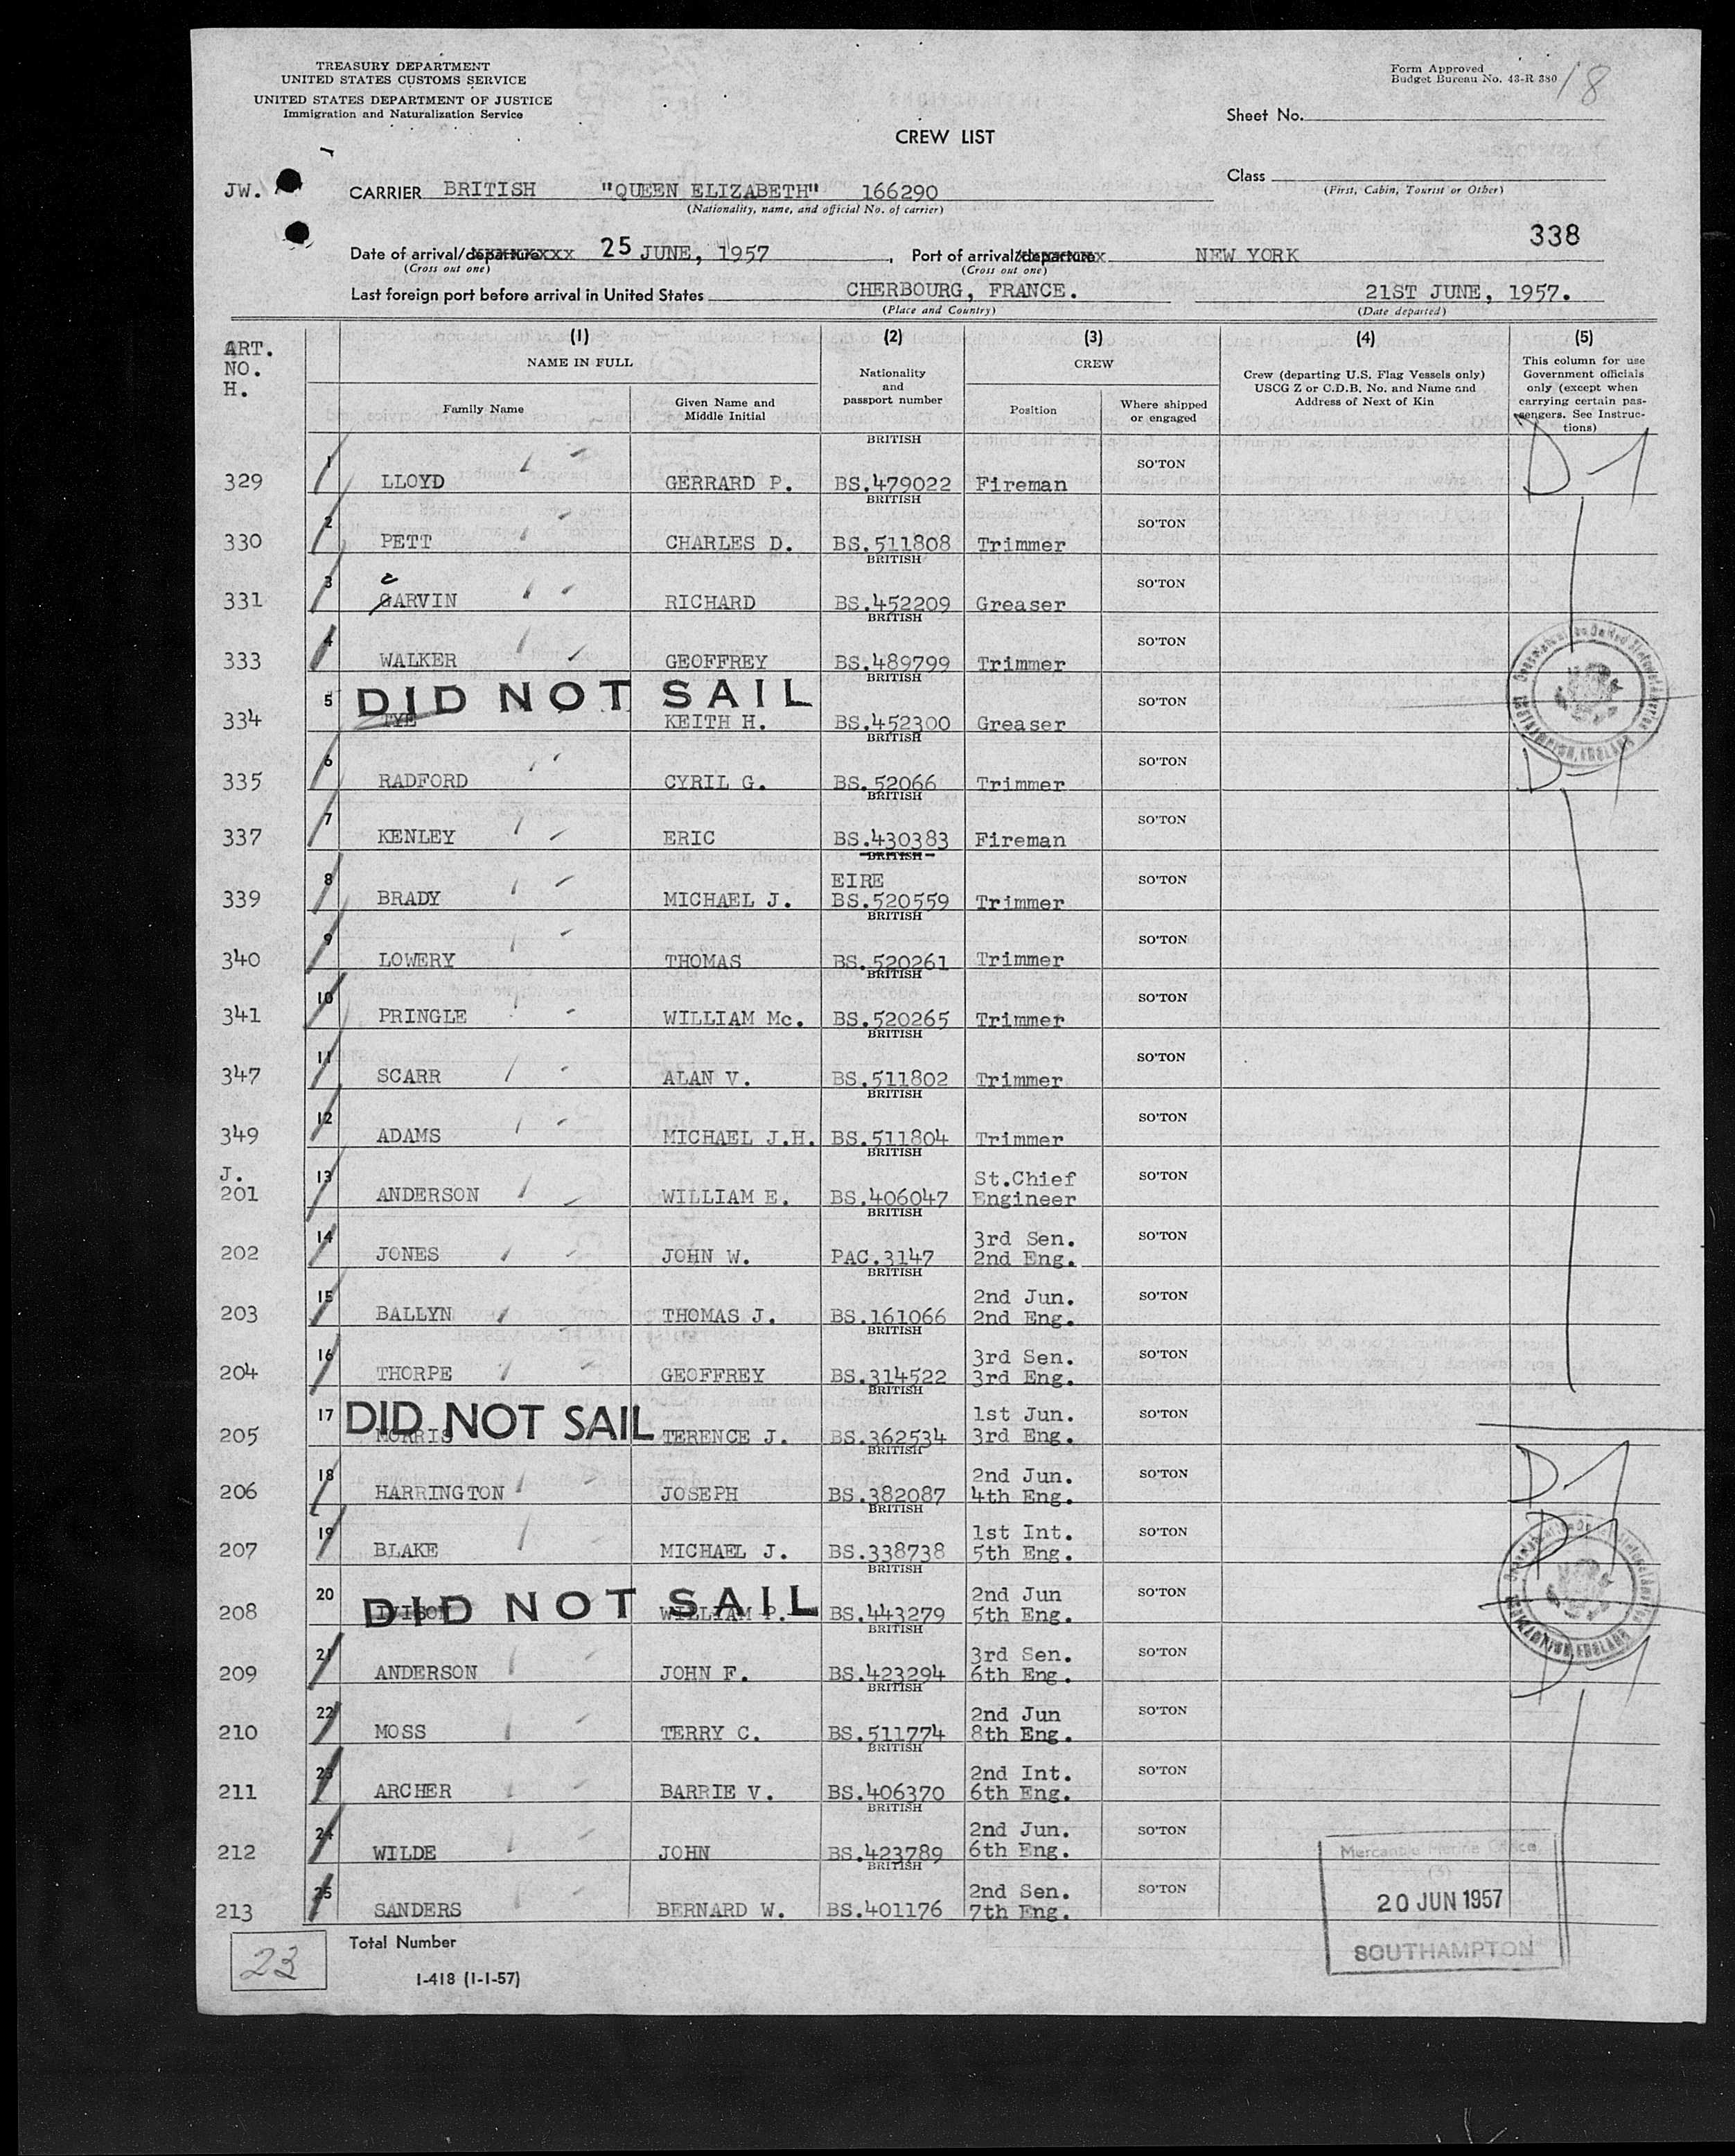 TREASURY DEPARTMENT
UNITED STATES CUSTOMS SERVICE
UNITED STATES DEPARTMENT OF JUSTICE
Immigration and Naturalization Service
Form Approved
Budget Bureau No. 43-R 380
18
Sheet No.
CREW LIST
Class
(First, Cabin, Tourist or Other)
JW.
CARRIER BRITISH "QUEEN ELIZABETH" 166290
(Nationality, name, and official No. of carrier)
338
Date of arrival/departure 25 JUNE, 1957, Port of arrival/departure NEW YORK
(Cross out one) (Cross out one)
Last foreign port before arrival in United States CHERBOURG, FRANCE. 21ST JUNE, 1957.
(Place and Country) (Date departed)
ART. NO. H.
(1) NAME IN FULL
Family Name
Given Name and Middle Initial
(2) Nationality and passport number
(3) CREW
Position
Where shipped or engaged
(4) Crew (departing U.S. Flag Vessels only) USCG Z or C.D.B. No. and Name and Address of Next of Kin
(5) This column for use Government officials only (except when carrying certain passengers. See Instructions)
329 1 LLOYD GERRARD P. BRITISH BS.479022 Fireman SO'TON D-1
330 2 PETT CHARLES D. BRITISH BS.511808 Trimmer SO'TON
331 3 GARVIN c RICHARD BRITISH BS.452209 Greaser SO'TON
333 4 WALKER GEOFFREY BRITISH BS.489799 Trimmer SO'TON
334 5 DID NOT SAIL KEITH H. BRITISH BS.452300 Greaser SO'TON
335 6 RADFORD CYRIL G. BRITISH BS.52066 Trimmer SO'TON D-1
337 7 KENLEY ERIC BRITISH BS.430383 Fireman SO'TON
339 8 BRADY MICHAEL J. BRITISH EIRE BS.520559 Trimmer SO'TON
340 9 LOWERY THOMAS BRITISH BS.520261 Trimmer SO'TON
341 10 PRINGLE WILLIAM Mc. BRITISH BS.520265 Trimmer SO'TON
347 11 SCARR ALAN V. BRITISH BS.511802 Trimmer SO'TON
349 12 ADAMS MICHAEL J.H. BRITISH BS.511804 Trimmer SO'TON
J. 201 13 ANDERSON WILLIAM E. BRITISH BS.406047 St.Chief Engineer SO'TON
202 14 JONES JOHN W. BRITISH PAC.3147 3rd Sen. 2nd Eng. SO'TON
203 15 BALLYN THOMAS J. BRITISH BS.161066 2nd Jun. 2nd Eng. SO'TON
204 16 THORPE GEOFFREY BRITISH BS.314522 3rd Sen. 3rd Eng. SO'TON
205 17 DID NOT SAIL MORRIS TERENCE J. BRITISH BS.362534 1st Jun. 3rd Eng. SO'TON
206 18 HARRINGTON JOSEPH BRITISH BS.382087 2nd Jun. 4th Eng. SO'TON D-1
207 19 BLAKE MICHAEL J. BRITISH BS.338738 1st Int. 5th Eng. SO'TON D-1
208 20 DID NOT SAIL WILLIAM P. BRITISH BS.443279 2nd Jun 5th Eng. SO'TON
209 21 ANDERSON JOHN F. BRITISH BS.423294 3rd Sen. 6th Eng. SO'TON D-1
210 22 MOSS TERRY C. BRITISH BS.511774 2nd Jun 8th Eng. SO'TON
211 23 ARCHER BARRIE V. BRITISH BS.406370 2nd Int. 6th Eng. SO'TON
212 24 WILDE JOHN BRITISH BS.423789 2nd Jun. 6th Eng. SO'TON
213 25 SANDERS BERNARD W. BRITISH BS.401176 2nd Sen. 7th Eng. SO'TON
Mercantile Marine Office
(3)
20 JUN 1957
SOUTHAMPTON
23 Total Number
I-418 (1-1-57)